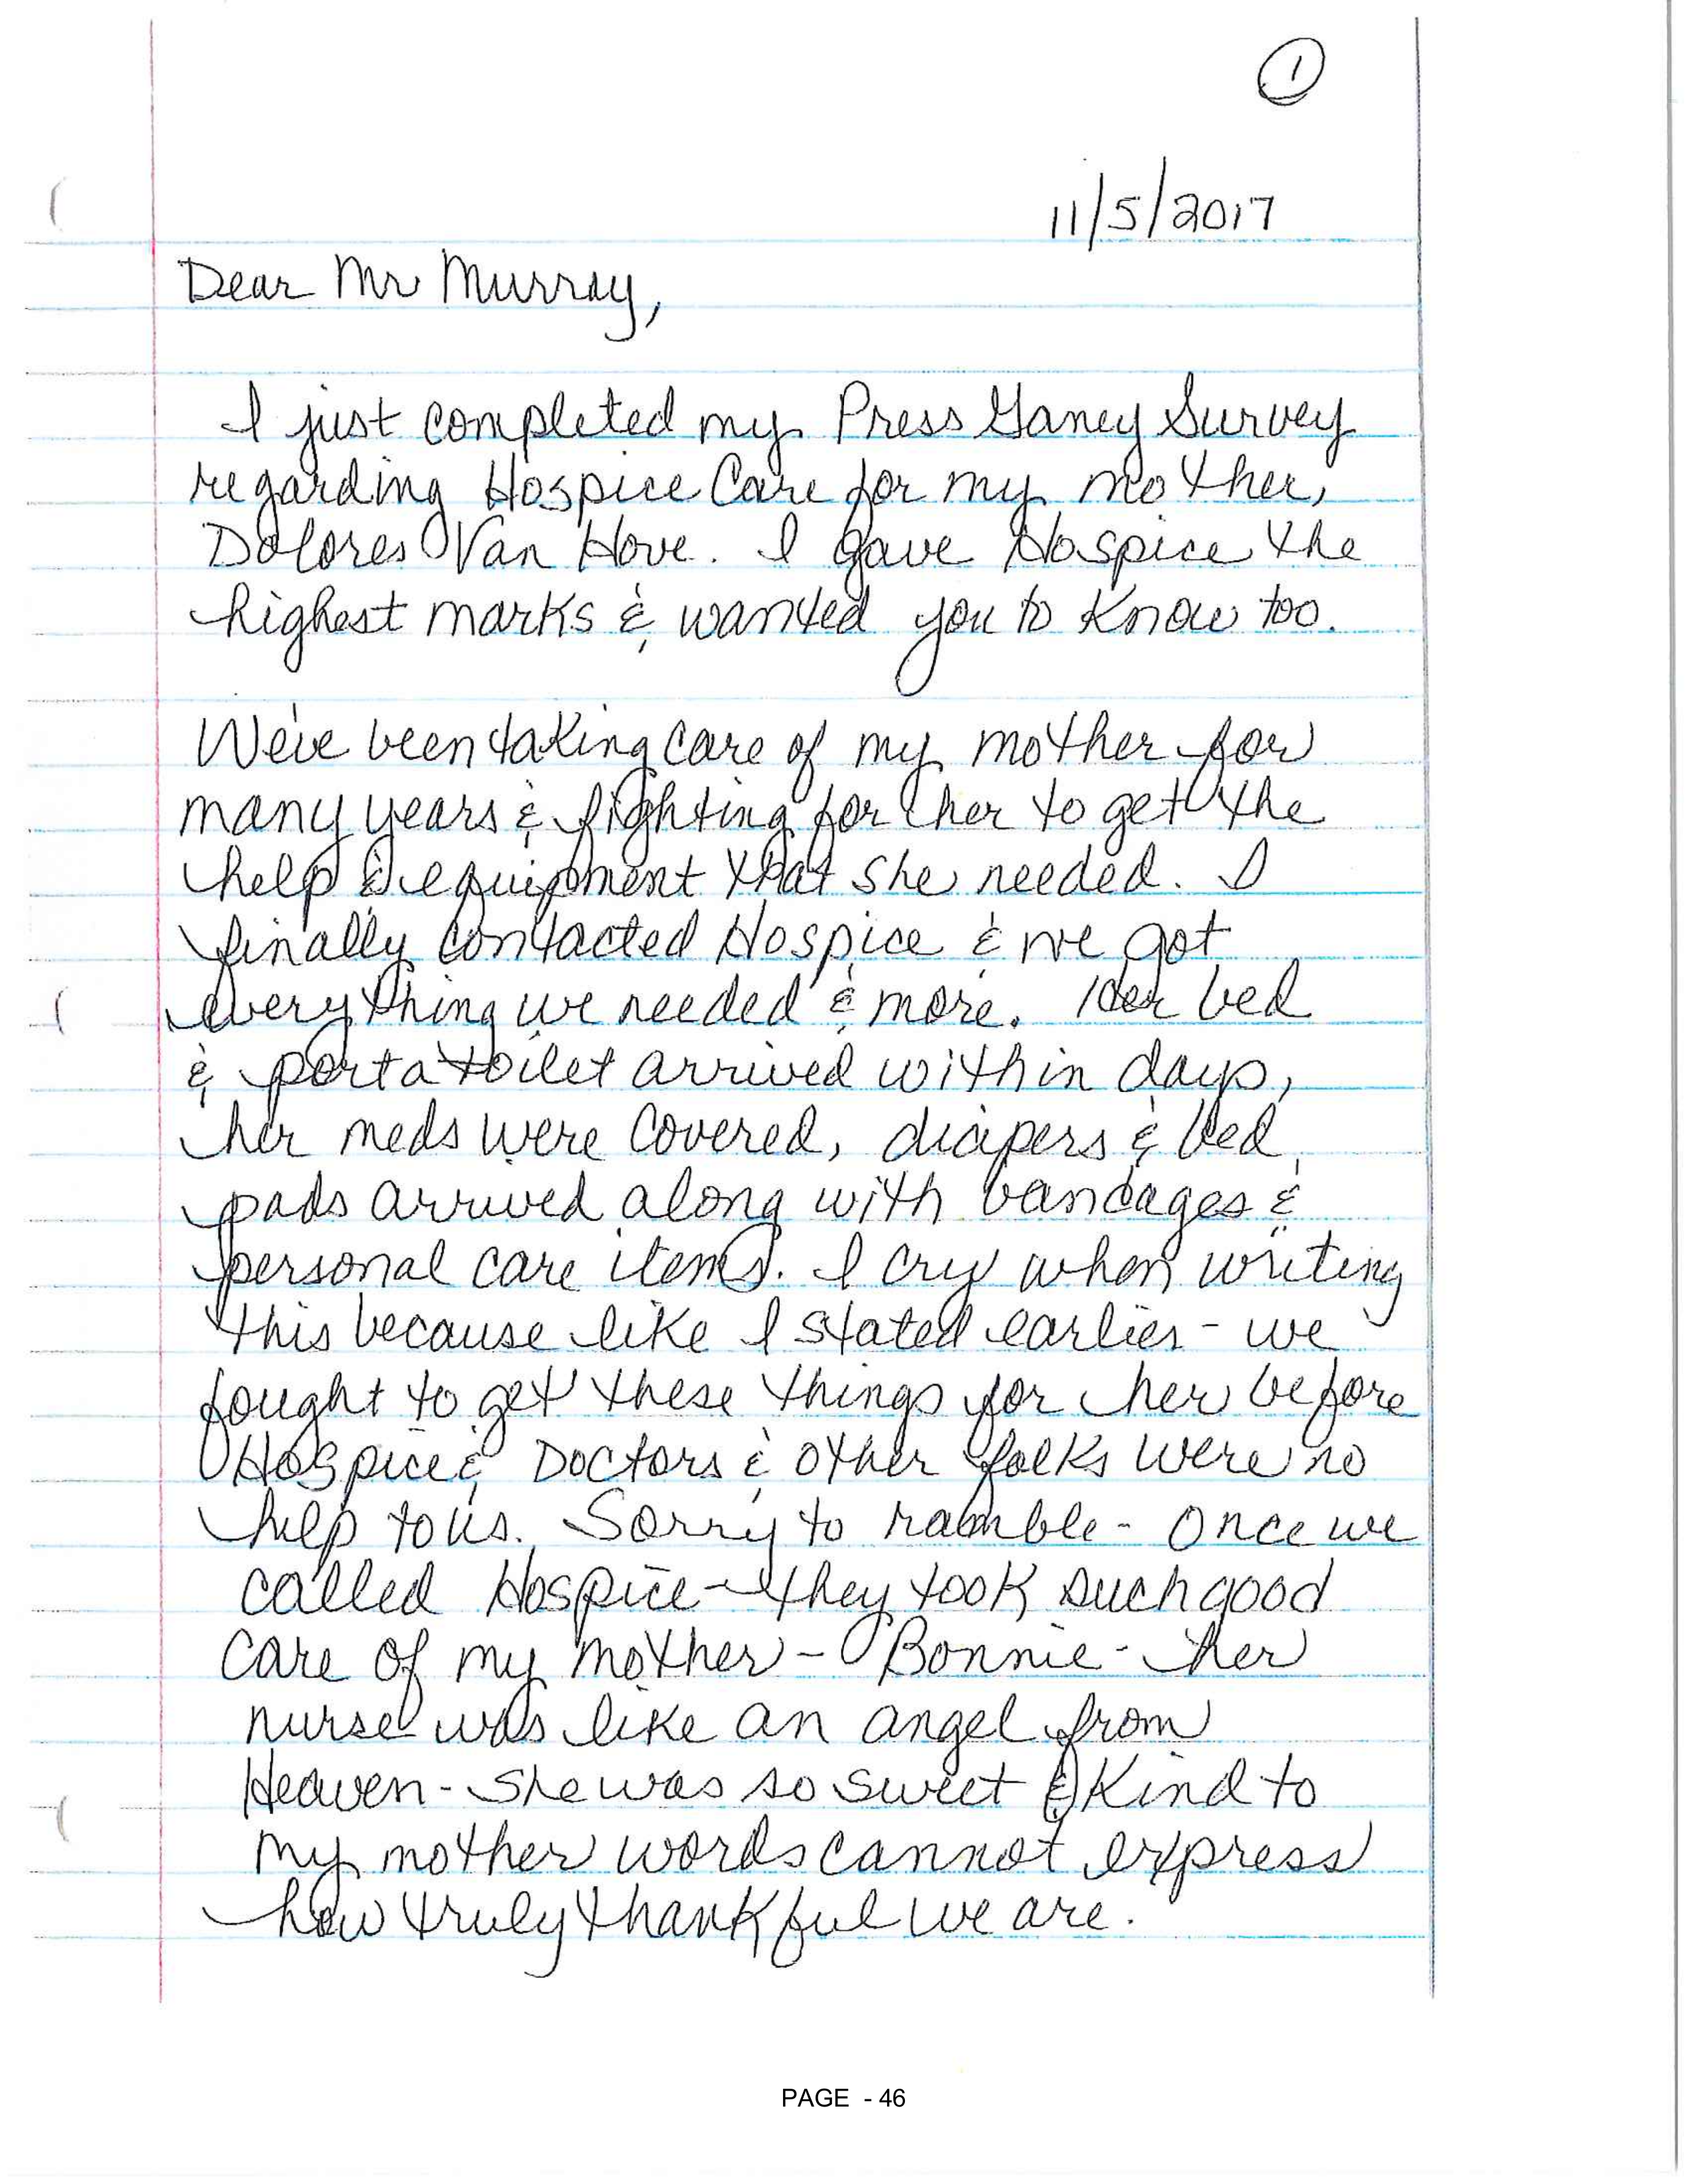 1
11/5/2017
Dear Mr Murray,
I just completed my Press Ganey Survey
regarding Hospice Care for my mother,
Dolores Van Hove. I gave Hospice the
highest marks & wanted you to know too.
We've been taking care of my mother for
many years & fighting for her to get the
help & equipment that she needed. I
finally contacted Hospice & we got
everything we needed & more. Her bed
& porta toilet arrived within days,
her meds were covered, diapers & bed
pads arrived along with bandages &
personal care items. I cry when writing
this because like I stated earlier - we
fought to get these things for her before
Hospice & Doctors & other folks were no
help to us. Sorry to ramble - Once we
called Hospice - they took such good
care of my mother - Bonnie - her
nurse was like an angel from
Heaven - she was so sweet & kind to
my mother words cannot express
how truly thankful we are.
PAGE - 46